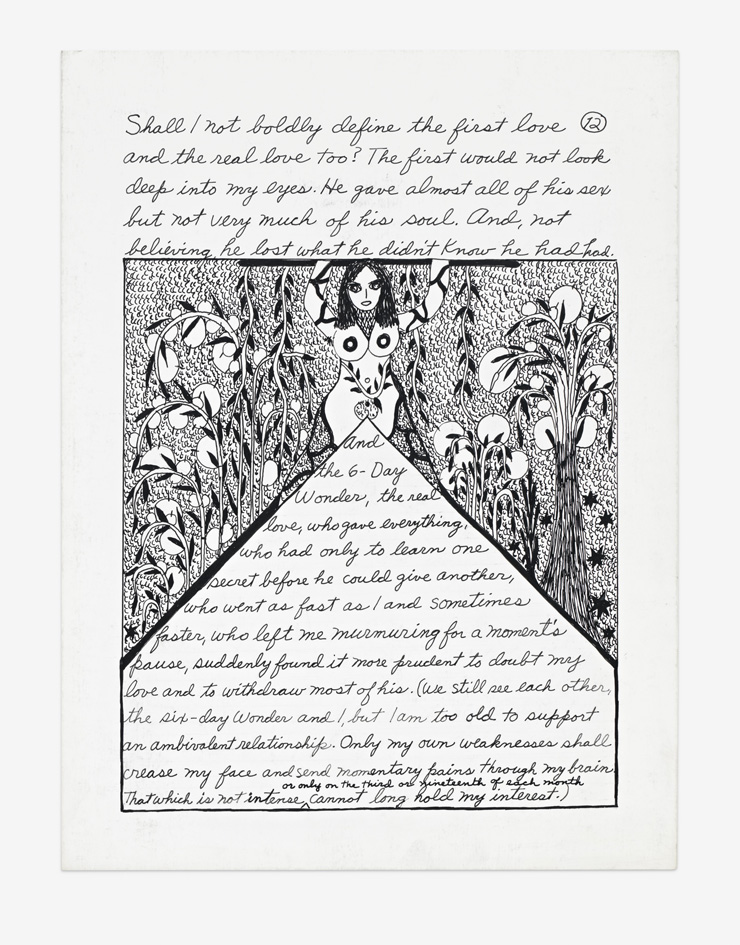 Shall I not boldly define the first love (12)
and the real love too? The first would not look
deep into my eyes. He gave almost all of his sex
but not very much of his soul. And, not
believing, he lost what he didn't know he had had.
And
the 6-Day
Wonder, the real
love, who gave everything,
who had only to learn one
secret before he could give another,
who went as fast as I and sometimes
faster, who left me murmuring for a moment's
pause, suddenly found it more prudent to doubt my
love and to withdraw most of his. (We still see each other,
the six-day Wonder and I, but I am too old to support
an ambivalent relationship. Only my own weaknesses shall
crease my face and send momentary pains through my brain.
or only on the third or nineteenth of each month
That which is not intense ^ cannot long hold my interest.)